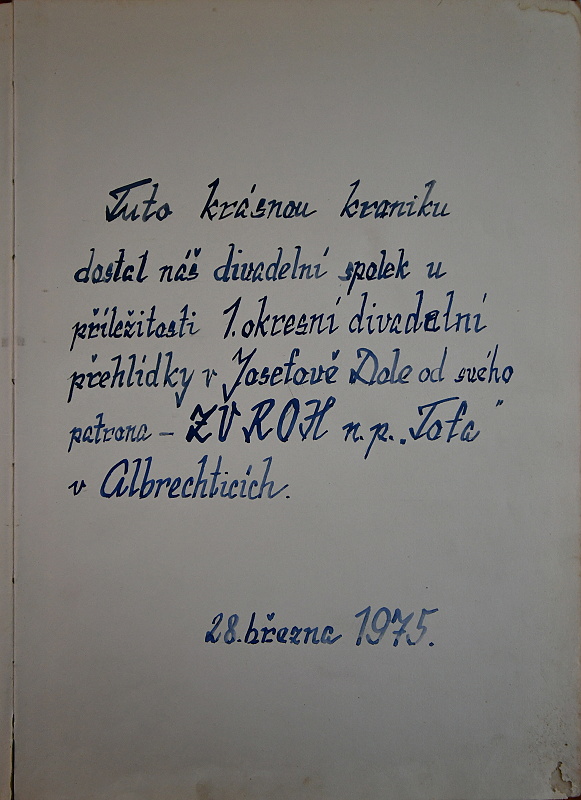 Tuto krásnou kroniku
dostal náš divadelní spolek u
příležitosti 1. okresní divadelní
přehlídky v Josefově Dole od svého
patrona – ZV ROH n.p. „Tofa"
v Albrechticích.
28. března 1975.